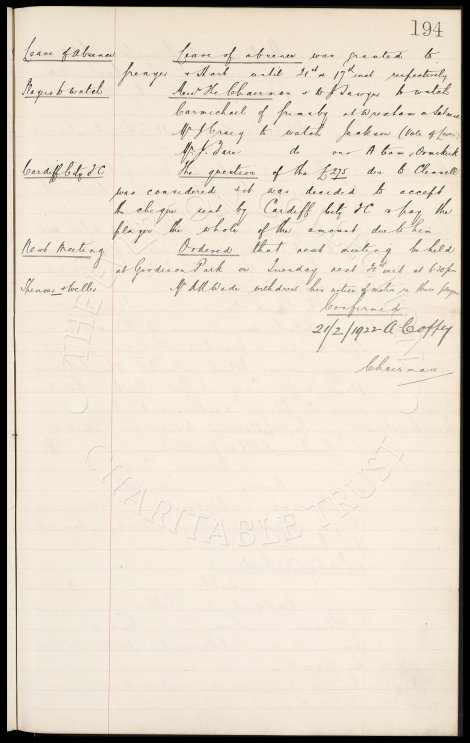 194
Leave of Absence Leave of absence was granted to
Spences & Hart until 21st & 17th inst respectively
Players to Watch Mess The Chairman & W J Sawyer to watch
Carmichael of Grimsby at Wrexham
Mr J Craig to watch Jackson (Vale of Leven)
Mr J. Fare do one A Cam
Cardiff City FC The question of the £275 due to Clennell
was considered & it was decided to accept
the cheque sent by Cardiff City FC & pay the
player the whole of the amount due to him
Next Meeting Ordered that next meeting be held
at Goodison Park on Tuesday next 21st inst at 6.30 pm
Mr A R Wade withdrew his notice of motion re these players
Confirmed
21/2/1922 A Coffey
Chairman
THE
CHARITABLE TRUST